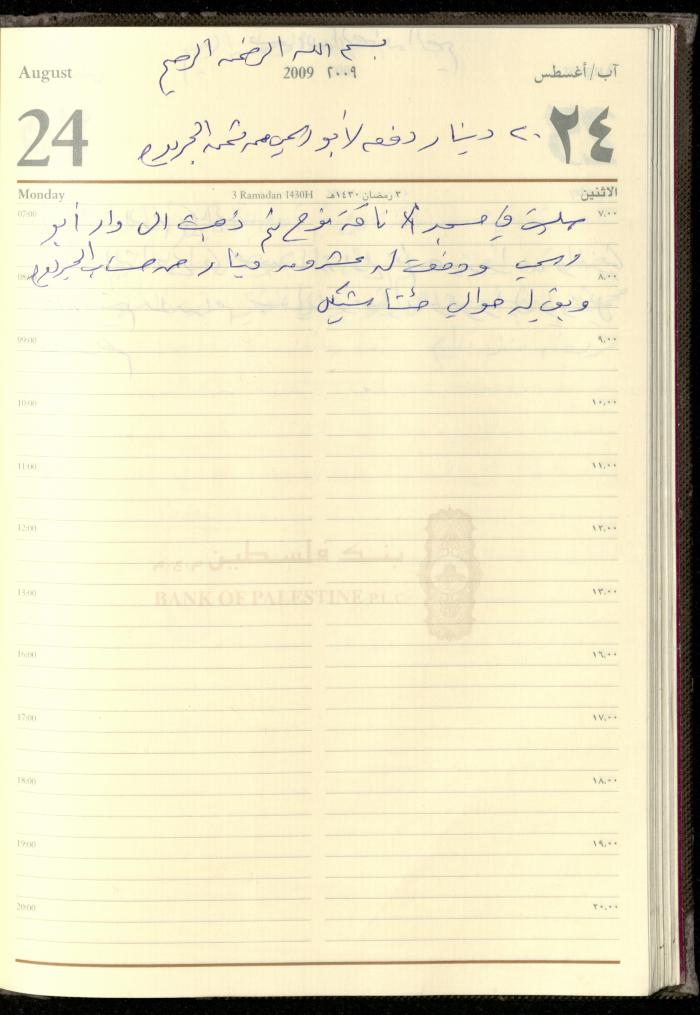 بسم الله الرحمن الرحيم
August
2009 ٢٠٠٩
آب/أغسطس
24
٢٤
٢٠ دينار دفعه لأبو من ثمن
Monday
3 Ramadan 1430H
٣ رمضان ١٤٣٠هـ
الاثنين
07:00 ٧,٠٠
صليت في مسجد نوح ثم ذهبت الى دار أبو
08:00 ٨,٠٠
ودفعت له عشرون دينار من حساب
وبقي له حوالي مئتا شيكل
09:00 ٩,٠٠
10:00 ١٠,٠٠
11:00 ١١,٠٠
12:00 ١٢,٠٠
بنك فلسطين م.ع.م
BANK OF PALESTINE P.L.C
13:00 ١٣,٠٠
16:00 ١٦,٠٠
17:00 ١٧,٠٠
18:00 ١٨,٠٠
19:00 ١٩,٠٠
20:00 ٢٠,٠٠